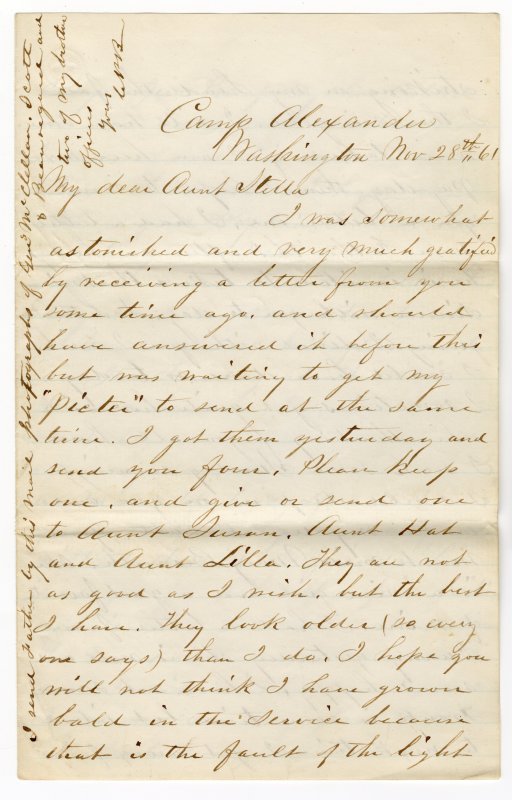 Camp Alexander
Washington Nov 28th 61
My dear Aunt Stella
I was somewhat
astonished and very much gratified
by receiving a letter from you
some time ago. and should
have answered it before this
but was waiting to get my
"Picter" to send at the same
time. I got them yesterday and
send you four. Please keep
one. and give or send one
to Aunt Susan. Aunt Hat
and Aunt Lilla. They are not
as good as I wish. but the best
I have. They look older (so every
one says) than I do. I hope you
will not think I have grown
bald in the service because
that is the fault of the light
I send Father by this mail photographs of Genls McClellan. Scott
& Beauregard and
two of my brother
officers
your